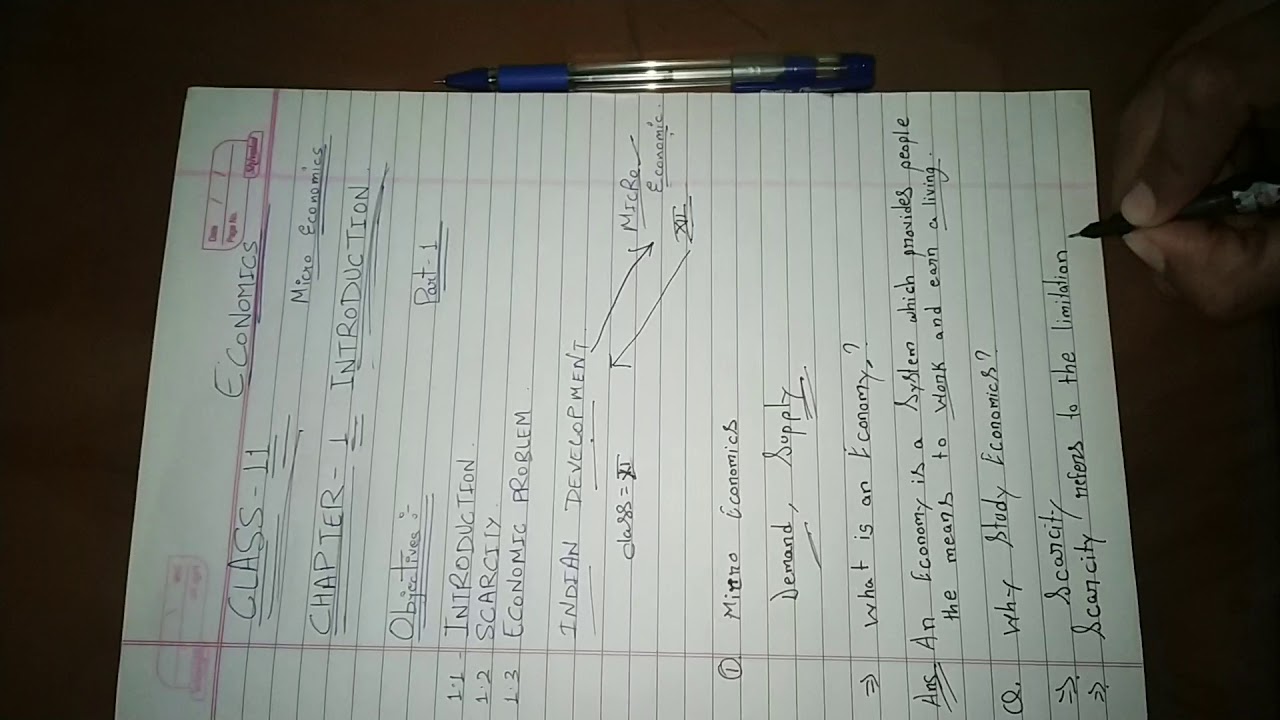 Date / /
Page No.
CLASS - 11 ECONOMICS
Micro Economics
CHAPTER - 1 INTRODUCTION
Part - 1
Objectives :-
1.1 - INTRODUCTION
1.2 SCARCITY.
1.3 ECONOMIC PROBLEM.
INDIAN DEVELOPMENT
MICRO
Economic.
class = XI
XII
① Micro Economics
Demand, Supply
⇒ What is an Economy?
Ans An Economy is a System which provides people
the means to work and earn a living.
Q. Why Study Economics?
⇒ Scarcity
⇒ Scarcity refers to the limitation